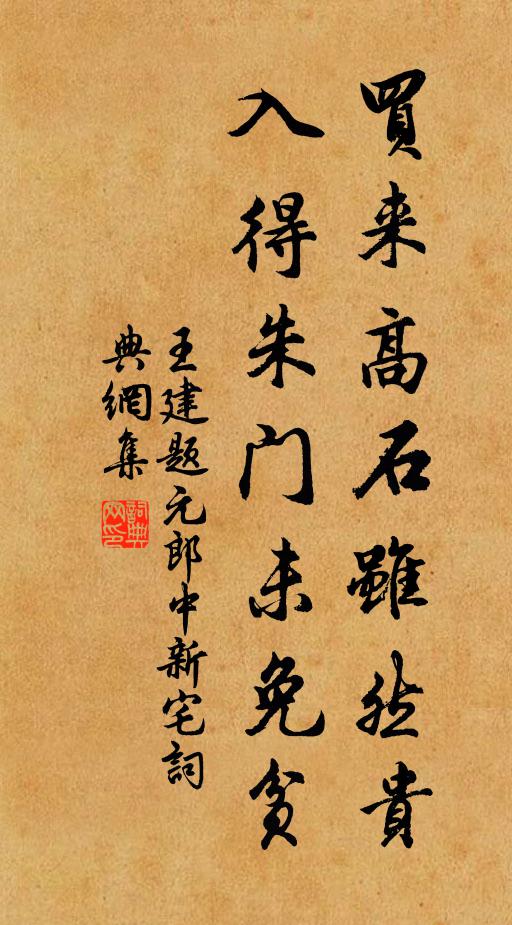 買来高石雖然貴
入得朱门未免貧
王建题元郎中新宅詞
典網集
詞典网印